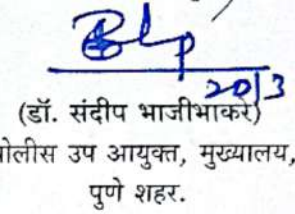 20/3
(डॉ. संदीप भाजीभाकरे)
पोलीस उप आयुक्त, मुख्यालय,
पुणे शहर.